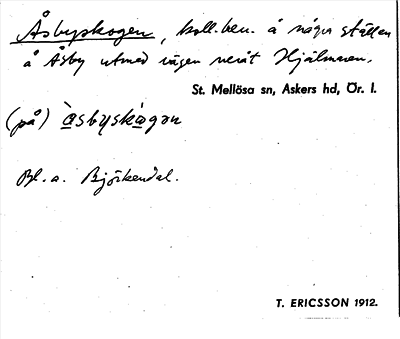 Åsbyskogen, koll.ben. å några ställen
å Åsby utmed vägen neråt Hjälmaren.
St. Mellösa sn, Askers hd, Ör. l.
(på) åsbyskògan
Bl. a. Björkendal.
T. ERICSSON 1912.